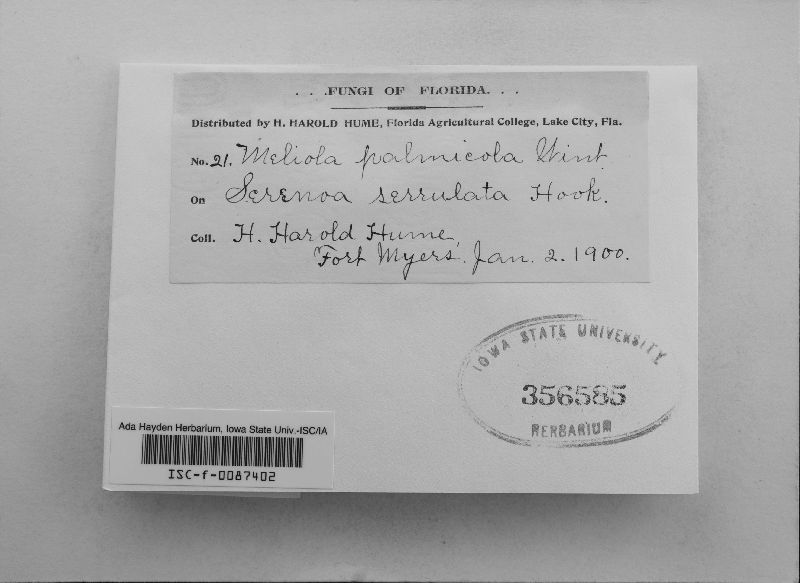 . . .FUNGI OF FLORIDA. . .
Distributed by H. HAROLD HUME, Florida Agricultural College, Lake City, Fla.
No. 21. Meliola palmicola Wint.
On Serenoa serrulata Hook.
Coll. H. Harold Hume,
Fort Myers. Jan. 2. 1900.
IOWA STATE UNIVERSITY
356585
HERBARIUM
Ada Hayden Herbarium, Iowa State Univ.-ISC/IA
ISC-f-0087402